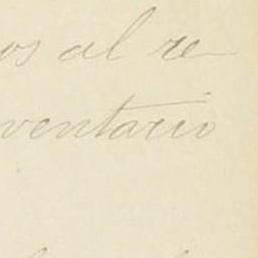 os al re
ventario